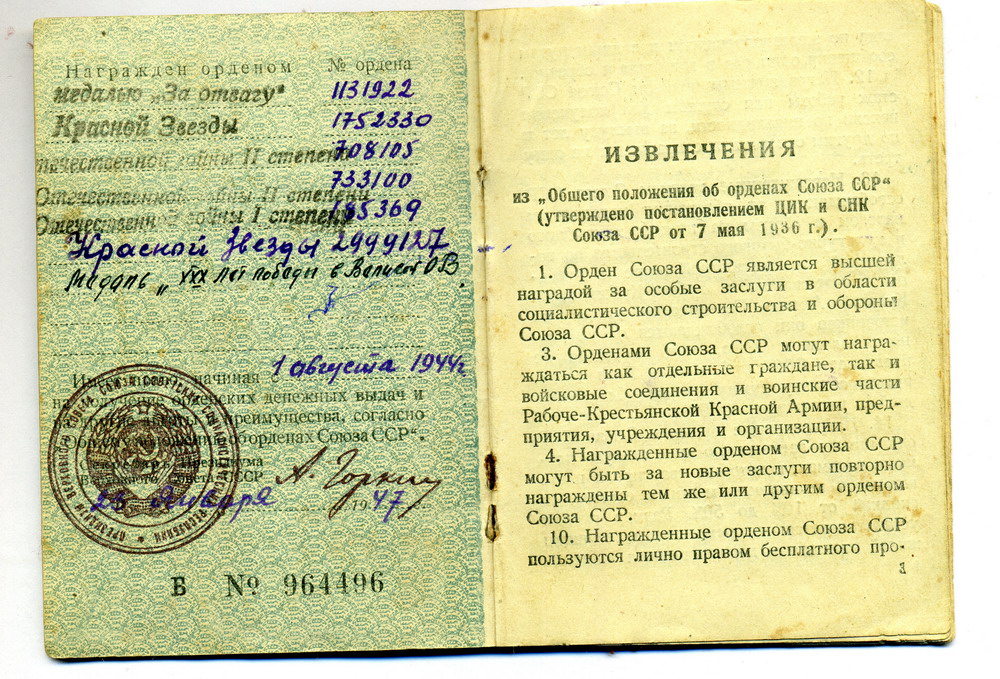 Награжден орденом № ордена
медалью „За отвагу" 1131922
Красной Звезды 1752330
течественной войны II степени 708105
Отечественной войны II степени 733100
Отечественной войны I степени 185369
Красной Звезды 2999127
Медаль „XXX лет победы в Великой ОВ".
1 августа 1944г
начиная с
на получение орденских денежных выдач и
преимущества, согласно
об орденах Союза ССР".
Секретарь Президиума
Верховного Совета СССР А. Горкин
25 Января 1947
Б № 964496
ИЗВЛЕЧЕНИЯ
из „Общего положения об орденах Союза ССР"
(утверждено постановлением ЦИК и СНК
Союза ССР от 7 мая 1936 г.).
1. Орден Союза ССР является высшей
наградой за особые заслуги в области
социалистического строительства и обороны
Союза ССР.
3. Орденами Союза ССР могут награ-
ждаться как отдельные граждане, так и
войсковые соединения и воинские части
Рабоче-Крестьянской Красной Армии, пред-
приятия, учреждения и организации.
4. Награжденные орденом Союза ССР
могут быть за новые заслуги повторно
награждены тем же или другим орденом
Союза ССР.
10. Награжденные орденом Союза ССР
пользуются лично правом бесплатного про-